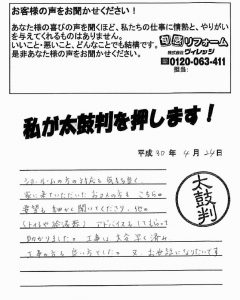 お客様の声をお聞かせください！
あなた様の喜びの声を聞くほど、私たちの仕事に情熱と、やりがい
を与えてくれるものはありません。
いいこと・悪いこと、どんなことでも結構です。
是非あなた様の声をお聞かせください。
リフォーム
株式会社ヴィレッジ
0120-063-411
担当:
私が太鼓判を押します！
平成 30 年 4 月 24 日
ショールームの方の
家に来ていただいた こちらの
要望も細かく聞いてくださり、他の
アドバイスもしてもらって
助かりました。工事は 早く済み
工事の方も 方でした。又、お世話になりたいです
太鼓判